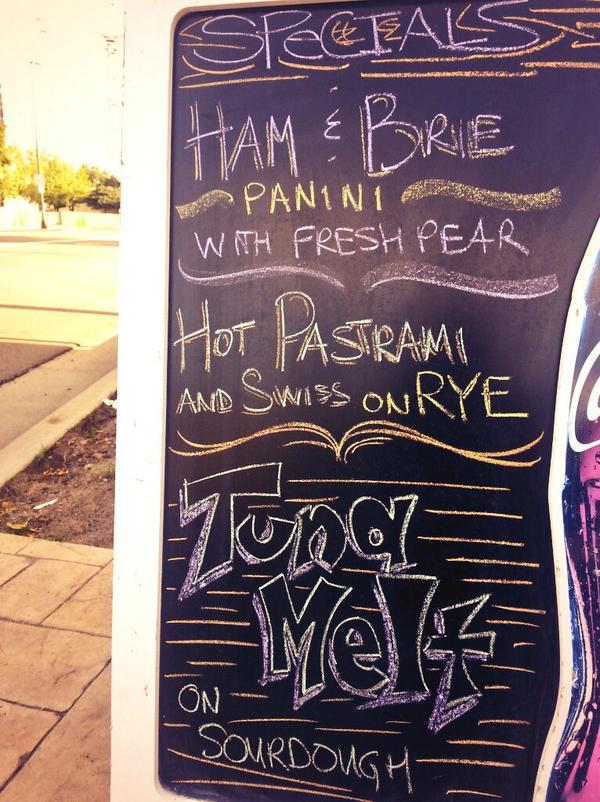 SPECIALS
HAM & BRIE
PANINI
WITH FRESH PEAR
HOT PASTRAMI
AND SWISS ON RYE
Tuna
Melt
ON
SOURDOUGH